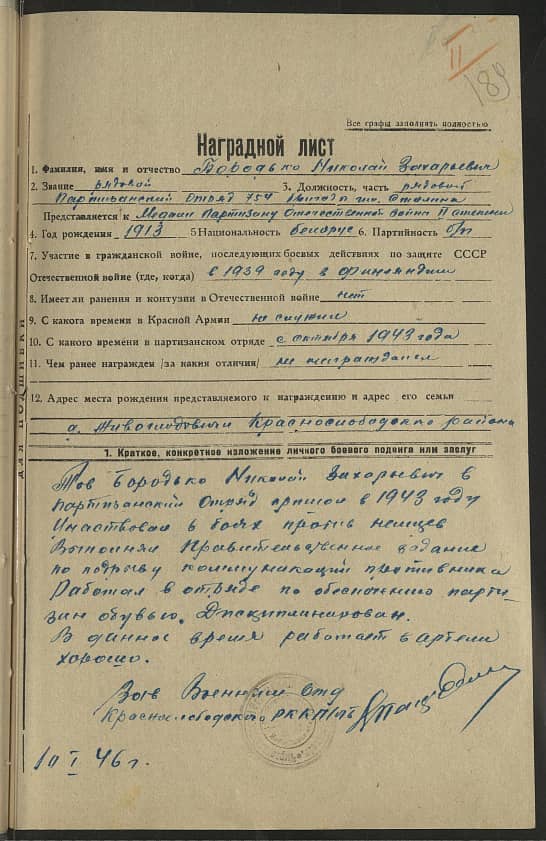 II
189
Все графы заполнять полностью
Наградной лист
1. Фамилия, имя и отчество Бородько Николай Захарьевич
2. Звание рядовой 3. Должность, часть рядовой
Партизанский Отряд 754 бригады им. Сталина
Представляется к Медали Партизану Отечественной война II степени
4. Год рождения 1913 5 Национальность белорус 6. Партийность б/п
7. Участие в гражданской войне, последующих боевых действиях по защите СССР
Отечественной войне (где, когда) в 1939 году в Финляндии
8. Имеет ли ранения и контузии в Отечественной войне нет
9. С какога времени в Красной Армии не служил
10. С какого времени в партизанском отряде с октября 1943 года
11. Чем ранее награжден /за какия отличия/ не награждался
12. Адрес места рождения представляемого к награждению и адрес его семьи
д. Живоглодовичи Краснослободского района
для подшивки
1. Краткое, конкретное изложение личного боевого подвига или заслуг
Тов Бородько Николай Захарьевич в
партизанский Отряд пришол в 1943 году
Участвовал в боях против немцев
Выполнял Правительственное задание
по подрыву коммуникаций противника
Работал в отряде по обеспечению парти-
зан обувью. Дисциплинирован.
В данное время работает в артели
хорошо.
Зав Военным Отд
Краснослободского РК КП/б/Б
10 I 46 г.